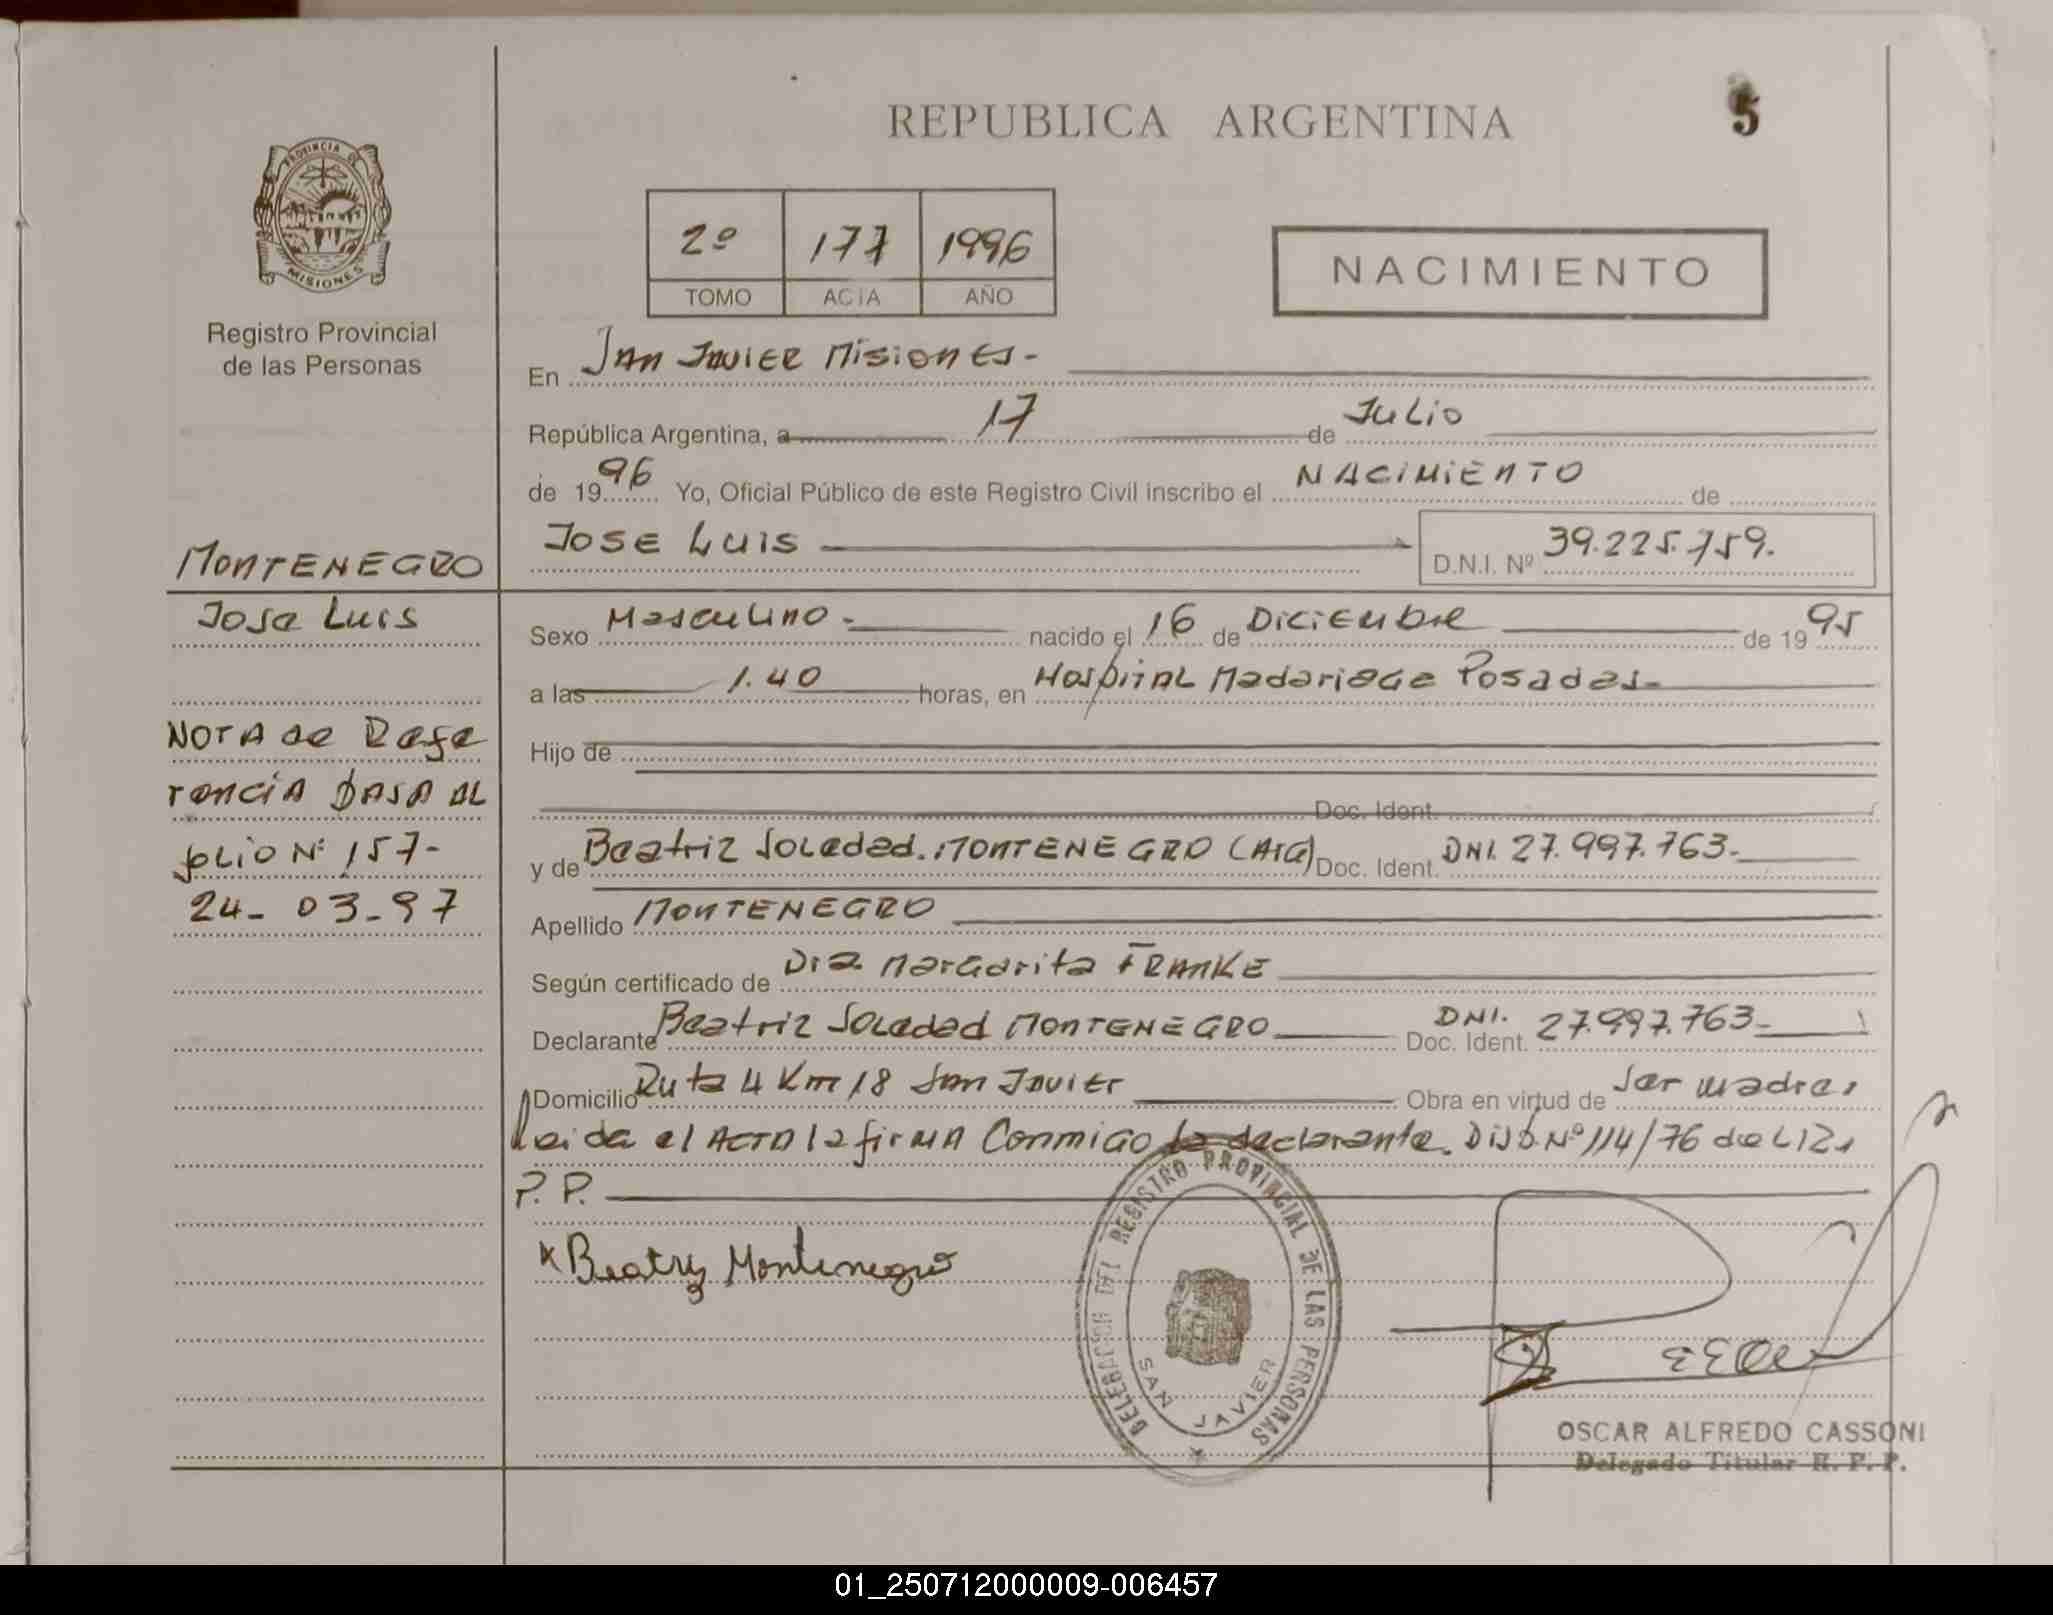 REPUBLICA ARGENTINA
5
PROVINCIA DE
MISIONES
Registro Provincial
de las Personas
2º 177 1996
TOMO ACTA AÑO
NACIMIENTO
En San Javier Misiones-
República Argentina, a 17 de Julio
de 1996 Yo, Oficial Público de este Registro Civil inscribo el NACIMIENTO de
Jose Luis D.N.I. Nº 39.225.759.
MONTENEGRO
Jose Luis
Nota de Refe
rencia pasa al
folio Nº 157-
24- 03-97
Sexo Masculino- nacido el 16 de Diciembre de 1995
a las 1.40 horas, en Hospital Madariaga Posadas-
Hijo de
Doc. Ident.
y de Beatriz Soledad MONTENEGRO (Arg) Doc. Ident. DNI. 27.997.763-
Apellido MONTENEGRO
Según certificado de Dra Margarita FRANKE
Declarante Beatriz Soledad MONTENEGRO Doc. Ident. DNI. 27.997.763-
Domicilio Ruta 4 Km 18 San Javier Obra en virtud de ser madre,
leida el Acta la firma Conmigo la declarante. Disp. Nº 114/76 del R.
P. P.
x Beatriz Montenegro
DELEGACION DEL REGISTRO PROVINCIAL DE LAS PERSONAS
SAN JAVIER
OSCAR ALFREDO CASSONI
Delegado Titular R. P. P.
01_250712000009-006457